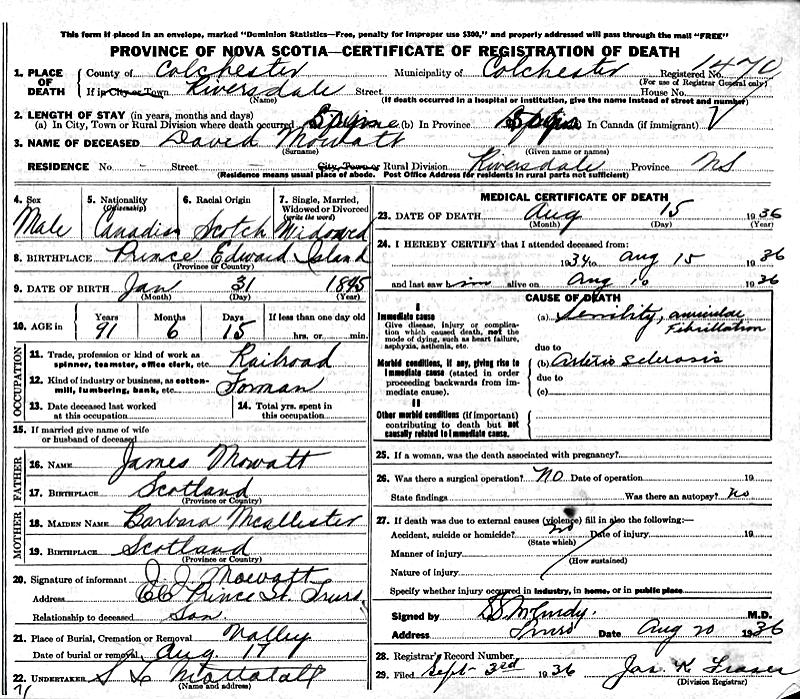 This form if placed in an envelope, marked "Dominion Statistics—Free, penalty for improper use $300," and properly addressed will pass through the mail "FREE"
PROVINCE OF NOVA SCOTIA—CERTIFICATE OF REGISTRATION OF DEATH
1. PLACE OF DEATH County of Colchester Municipality of Colchester Registered No. 1470
(For use of Registrar General only)
If in City or Town Riversdale Street House No.
(Name) (If death occurred in a hospital or institution, give the name instead of street and number)
2. LENGTH OF STAY (in years, months and days)
(a) In City, Town or Rural Division where death occurred (b) In Province In Canada (if immigrant)
3. NAME OF DECEASED David Mowatt
(Surname) (Given name or names)
RESIDENCE No. - Street City, Town or Rural Division Riversdale Province NS
(Residence means usual place of abode. Post Office Address for residents in rural parts not sufficient)
4. Sex 5. Nationality (Citizenship) 6. Racial Origin 7. Single, Married, Widowed or Divorced (write the word)
Male Canadian Scotch Widowed
8. BIRTHPLACE Prince Edward Island
(Province or Country)
9. DATE OF BIRTH Jan 31 1845
(Month) (Day) (Year)
10. AGE in Years Months Days If less than one day old
91 6 15 hrs. or min.
OCCUPATION
11. Trade, profession or kind of work as spinner, teamster, office clerk, etc. Railroad
12. Kind of industry or business, as cotton-mill, lumbering, bank, etc. Forman
13. Date deceased last worked at this occupation 14. Total yrs. spent in this occupation
15. If married give name of wife or husband of deceased
FATHER
16. NAME James Mowatt
17. BIRTHPLACE Scotland
(Province or Country)
MOTHER
18. MAIDEN NAME Barbara Mcallister
19. BIRTHPLACE Scotland
(Province or Country)
20. Signature of informant J. J. Moewatt
Address Prince St. Truro
Relationship to deceased Son
21. Place of Burial, Cremation or Removal Valley
Date of burial or removal Aug. 17
22. UNDERTAKER Mattatall
(Name and address)
MEDICAL CERTIFICATE OF DEATH
23. DATE OF DEATH Aug 15 1936
(Month) (Day) (Year)
24. I HEREBY CERTIFY that I attended deceased from:
1934 to Aug 15 1936
and last saw him alive on Aug 10 1936
CAUSE OF DEATH
I
Immediate cause
Give disease, injury or complication which caused death, not the mode of dying, such as heart failure, asphyxia, asthenia, etc.
(a) Senility, auricular Fibrillation
due to
Morbid conditions, if any, giving rise to immediate cause (stated in order proceeding backwards from immediate cause).
(b) Arterio sclerosis
due to
(c)
II
Other morbid conditions (if important) contributing to death but not causally related to immediate cause.
25. If a woman, was the death associated with pregnancy?
26. Was there a surgical operation? NO Date of operation 19
State findings Was there an autopsy? No
27. If death was due to external causes (violence) fill in also the following:—
Accident, suicide or homicide? no Date of injury 19
(State which)
Manner of injury
(How sustained)
Nature of injury
Specify whether injury occurred in industry, in home, or in public place
Signed by M.D.
Address Truro Date Aug 20 1936
28. Registrar's Record Number
29. Filed Sept 3rd 1936 Jas. K Fraser
(Division Registrar)